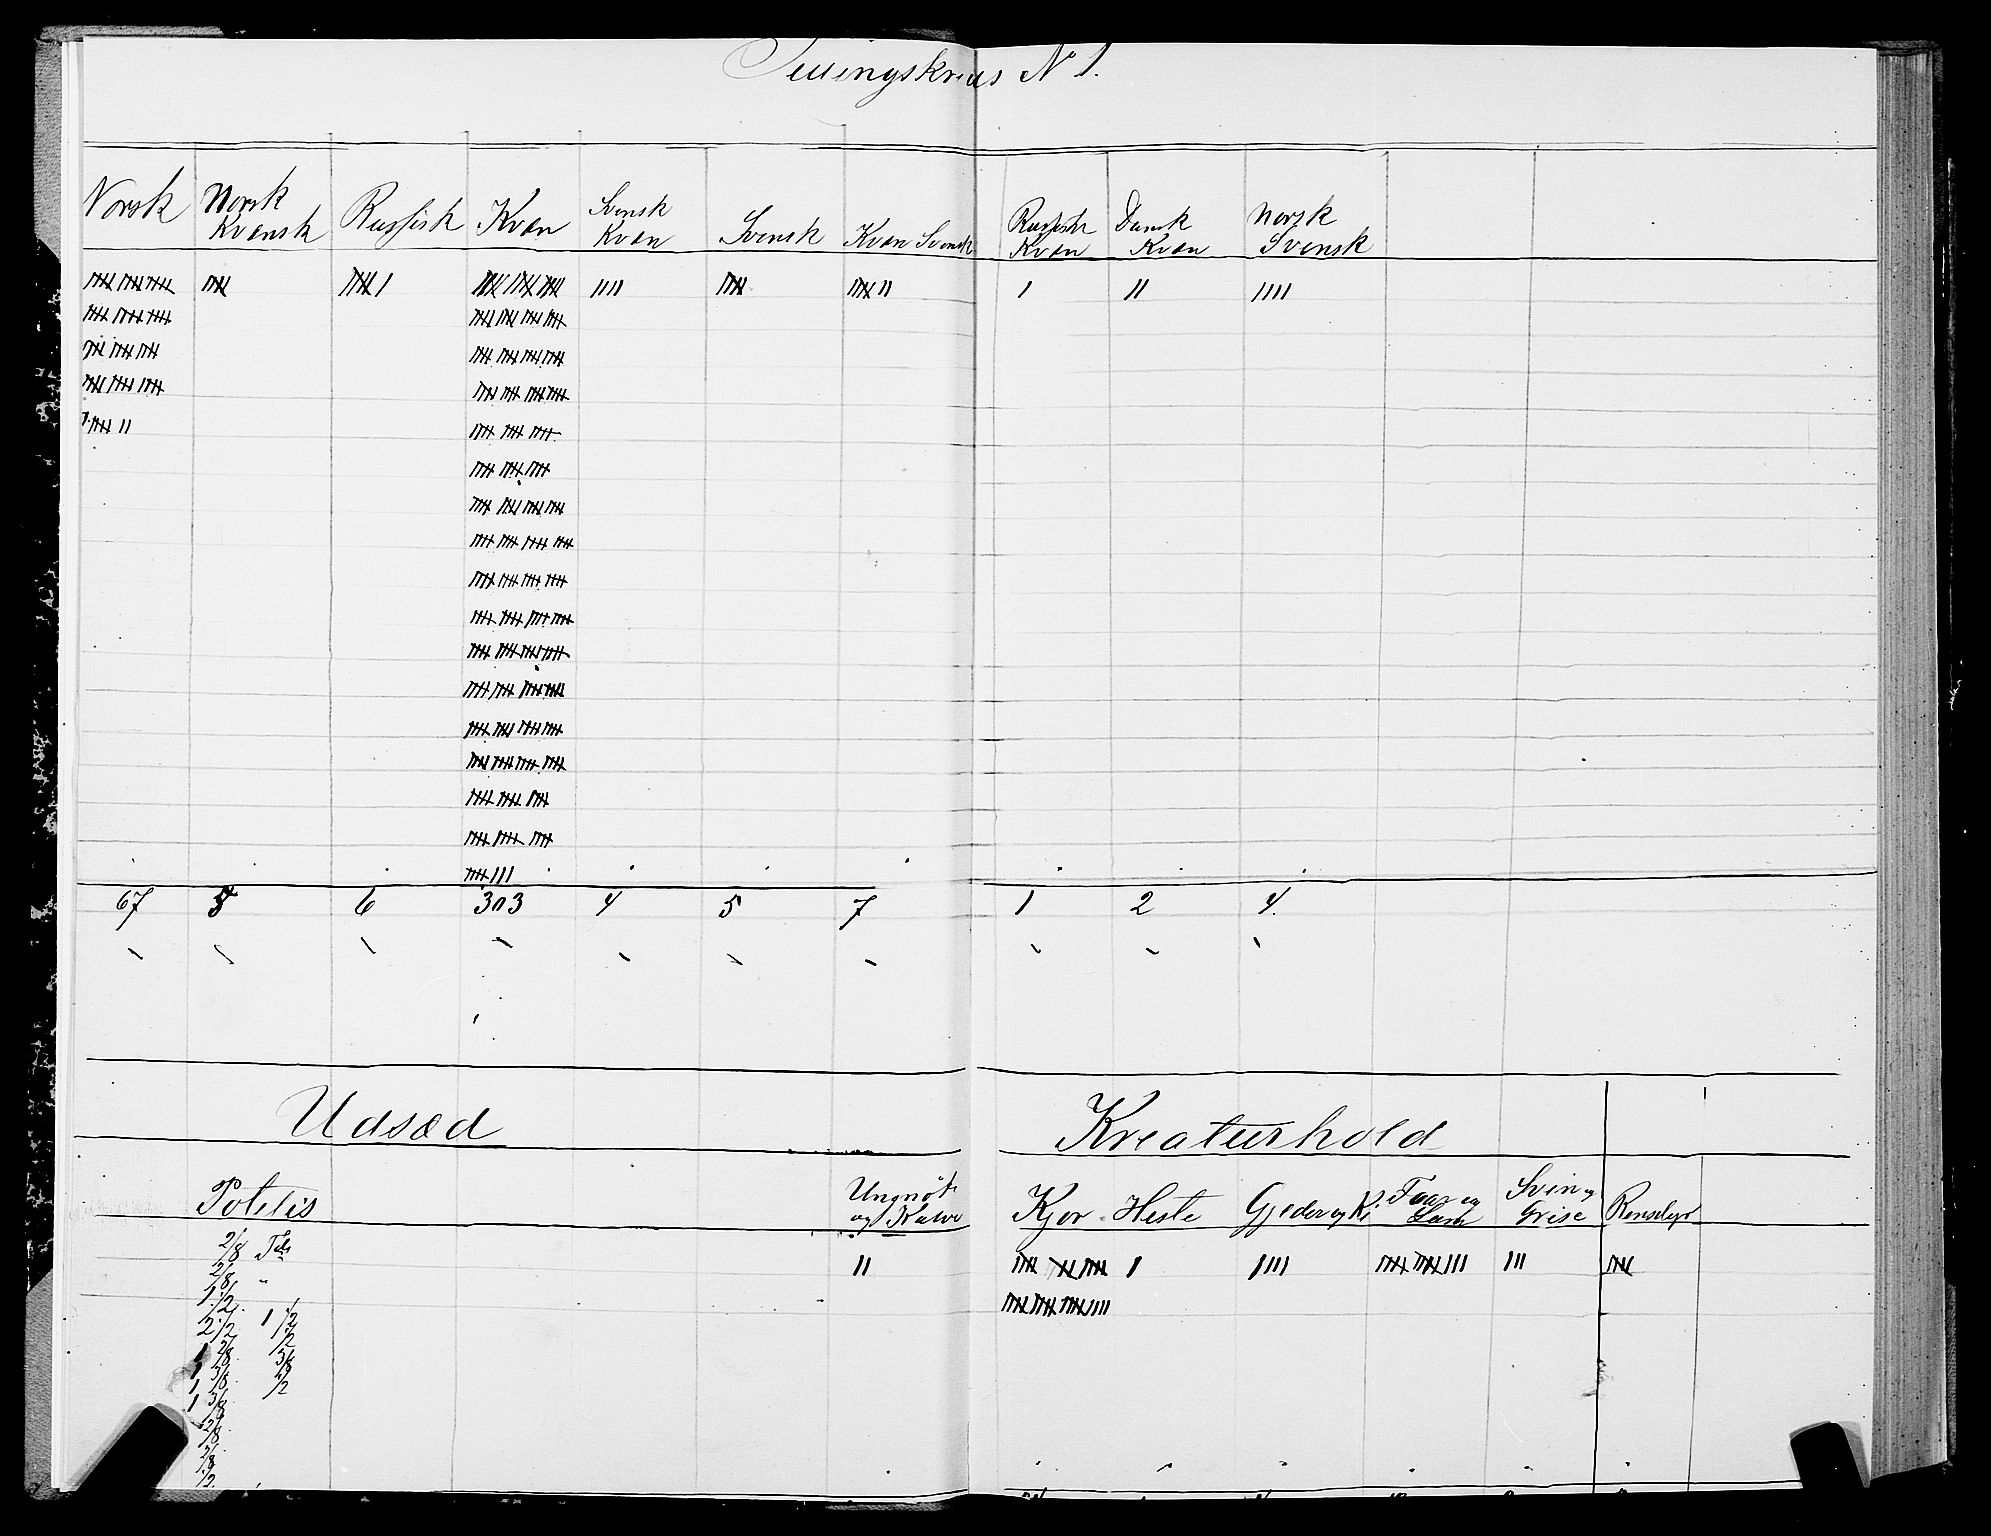 Tellingskreds No 1.
Norsk Norsk Kvænsk Russisk Kvæn Svensk Kvæn Svensk Kvæn Svensk Russisk Kvæn Dansk Kvæn Norsk Svensk
67 5 6 303 4 5 7 1 2 4.
Udsæd Kreaturhold
Potetes Ungnöt og Kalve Kjør Heste Gjeder og Ki Faar og Lam Svin og Grise Rensdyr
2/8 Tdr
2/8 "
1/2
2 1/2 1 1/2
1 2/8 1/2
1 3/8 3/8
1 3/8 1/2
2/8
2/8
1/2